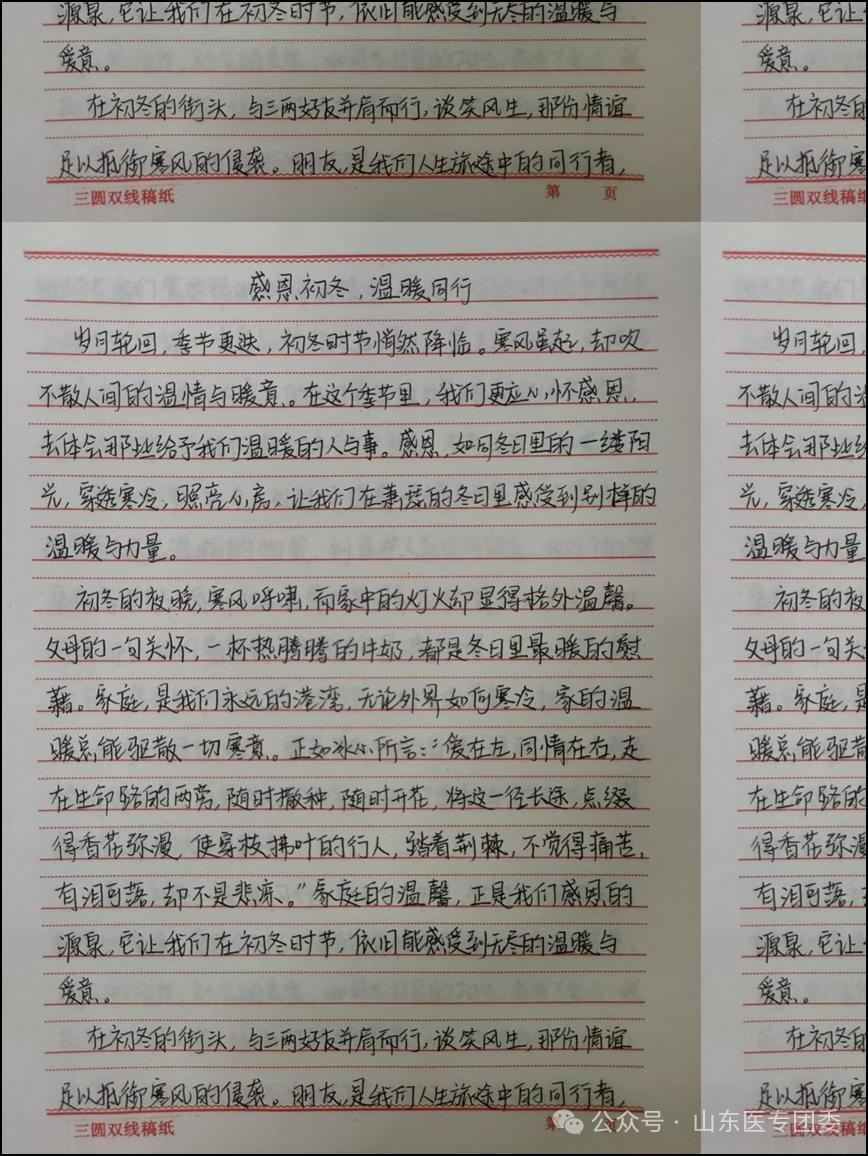 源泉,它让我们在初冬时节,依旧能感受到无尽的温暖与
爱意。
在初冬的街头,与三两好友并肩而行,谈笑风生,那份情谊
足以抵御寒风的侵袭。朋友,是我们人生旅途中的同行者,
三圆双线稿纸
第 页
感恩初冬,温暖同行
岁月轮回,季节更迭,初冬时节悄然降临。寒风虽起,却吹
不散人间的温情与暖意。在这个季节里,我们更应心怀感恩,
去体会那些给予我们温暖的人与事。感恩,如同冬日里的一缕阳
光,穿透寒冷,照亮心房,让我们在萧瑟的冬日里感受到别样的
温暖与力量。
初冬的夜晚,寒风呼啸,而家中的灯火却显得格外温馨。
父母的一句关怀,一杯热腾腾的牛奶,都是冬日里最暖的慰
藉。家庭,是我们永远的港湾,无论外界如何寒冷,家的温
暖总能驱散一切寒意。正如冰心所言:“爱在左,同情在右,走
在生命路的两旁,随时撒种,随时开花,将这一径长途,点缀
得香花弥漫,使穿枝拂叶的行人,踏着荆棘,不觉得痛苦,
有泪可落,却不是悲凉。”家庭的温馨,正是我们感恩的
源泉,它让我们在初冬时节,依旧能感受到无尽的温暖与
爱意。
在初冬的街头,与三两好友并肩而行,谈笑风生,那份情谊
足以抵御寒风的侵袭。朋友,是我们人生旅途中的同行者,
三圆双线稿纸
第 页
公众号·山东医专团委
在初冬的
足以抵御寒
三圆双线稿纸
岁月轮回,
不散人间的温
去体会那些给
光,穿透寒冷,
温暖与力量
初冬的夜
父母的一句关
藉。家庭,是
暖总能驱散
在生命路的
得香花弥漫
有泪可落,
源泉,它让
爱意。
在初冬的
足以抵御寒
三圆双线稿纸